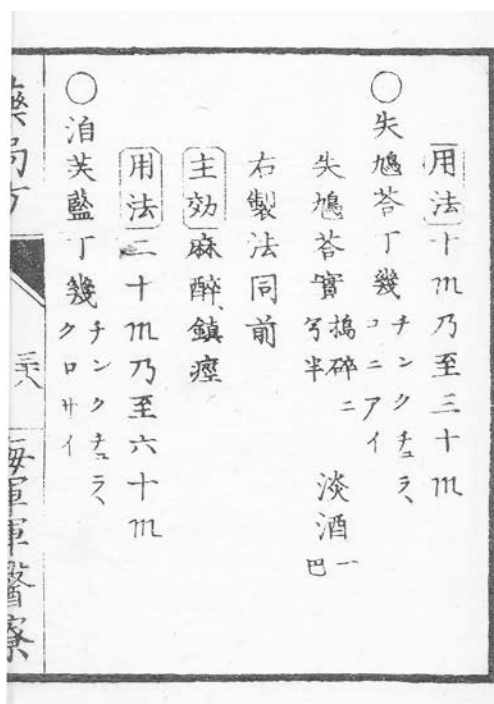 用法十㎖乃至三十㎖
○失鳩荅丁幾 チンクチュラ、コニアイ
失鳩荅實 搗碎二兮半 淡酒 一巴
右製法同前
主効 麻醉、鎮痙
用法二十㎖乃至六十㎖
○泊芙藍丁幾 チンクチュラ、クロサイ
藥局方
海軍軍醫寮